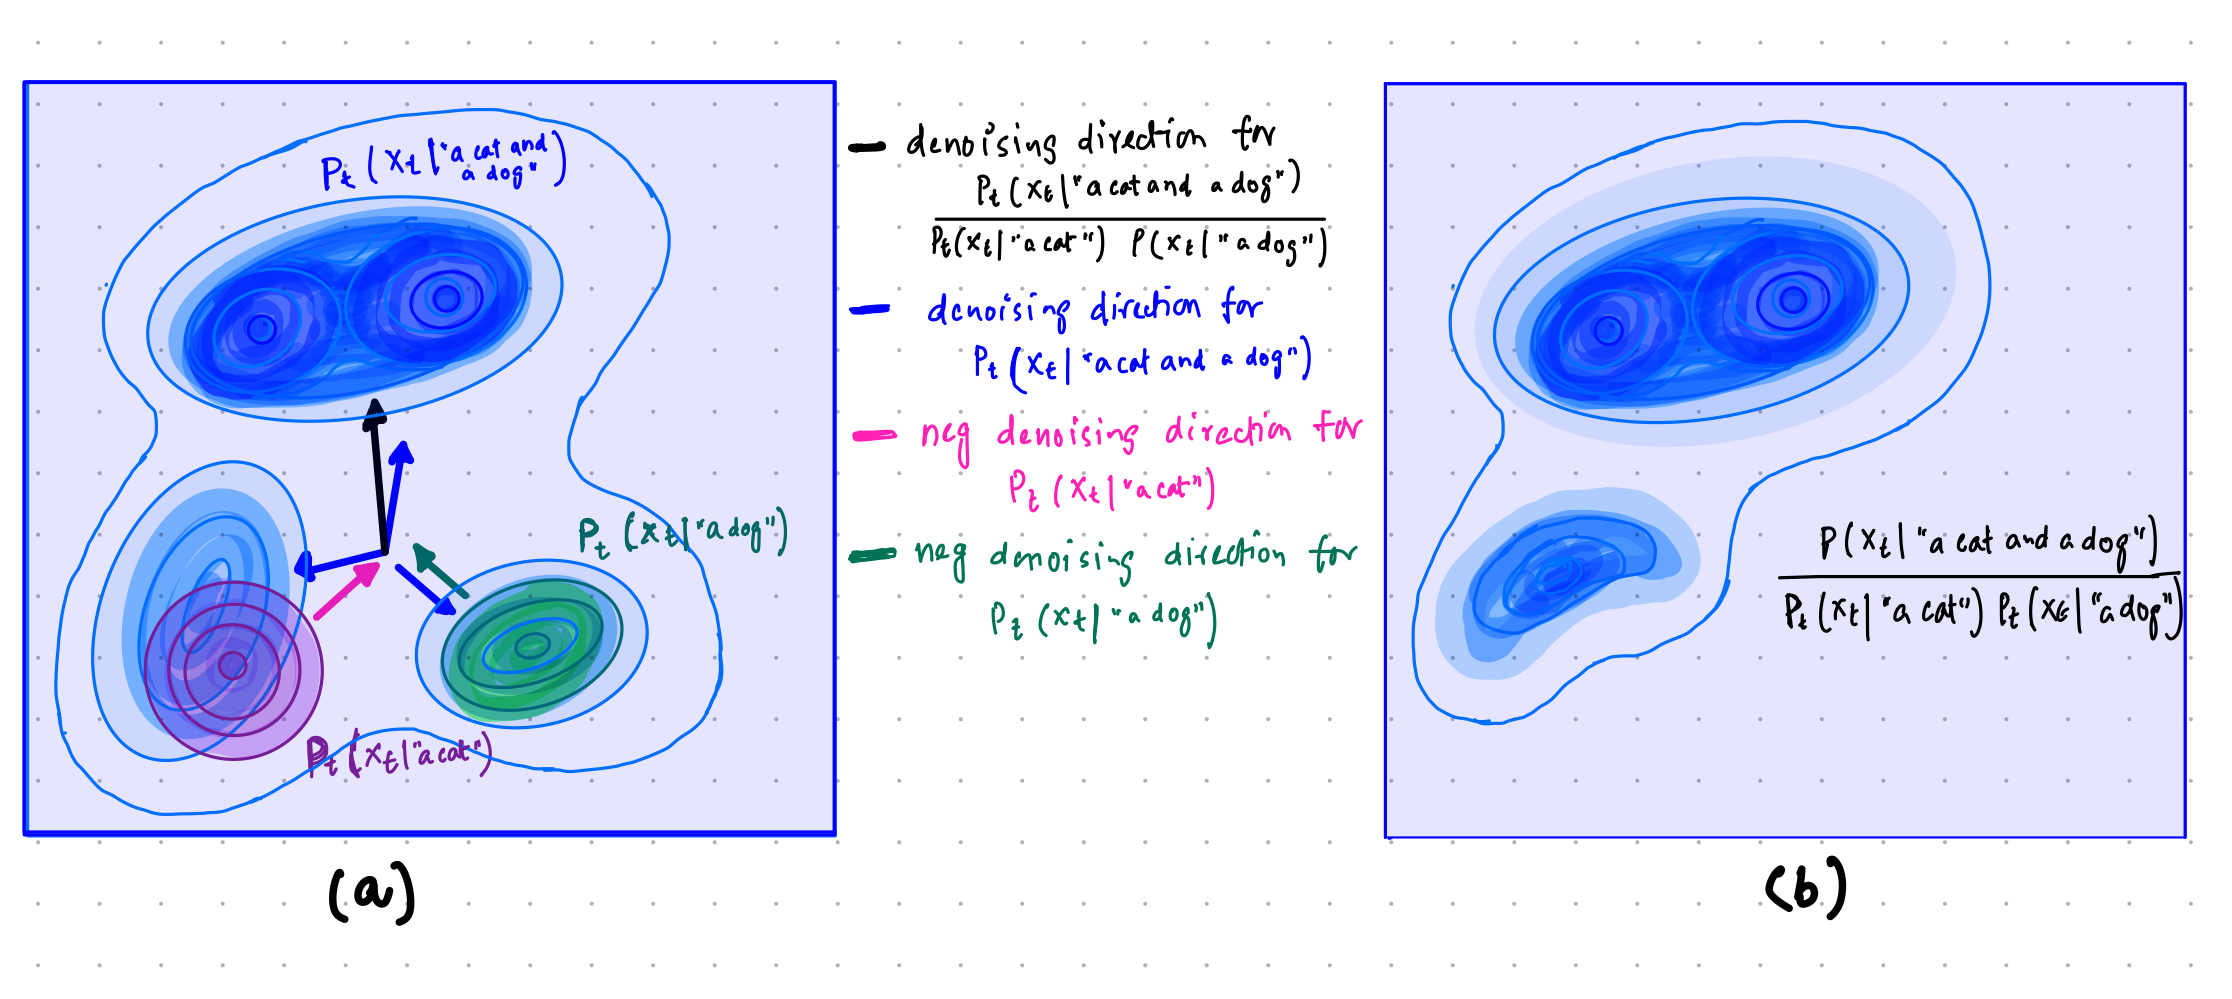 Pt (Xt | "a cat and
a dog")
Pt (Xt | "a dog")
Pt (Xt | "a cat")
(a)
denoising direction for
Pt (Xt | "a cat and a dog")
Pt (Xt | "a cat") P (Xt | "a dog")
denoising direction for
Pt (Xt | "a cat and a dog")
neg denoising direction for
Pt (Xt | "a cat")
neg denoising direction for
Pt (Xt | "a dog")
P (Xt | "a cat and a dog")
Pt (Xt | "a cat") Pt (Xt | "a dog")
(b)